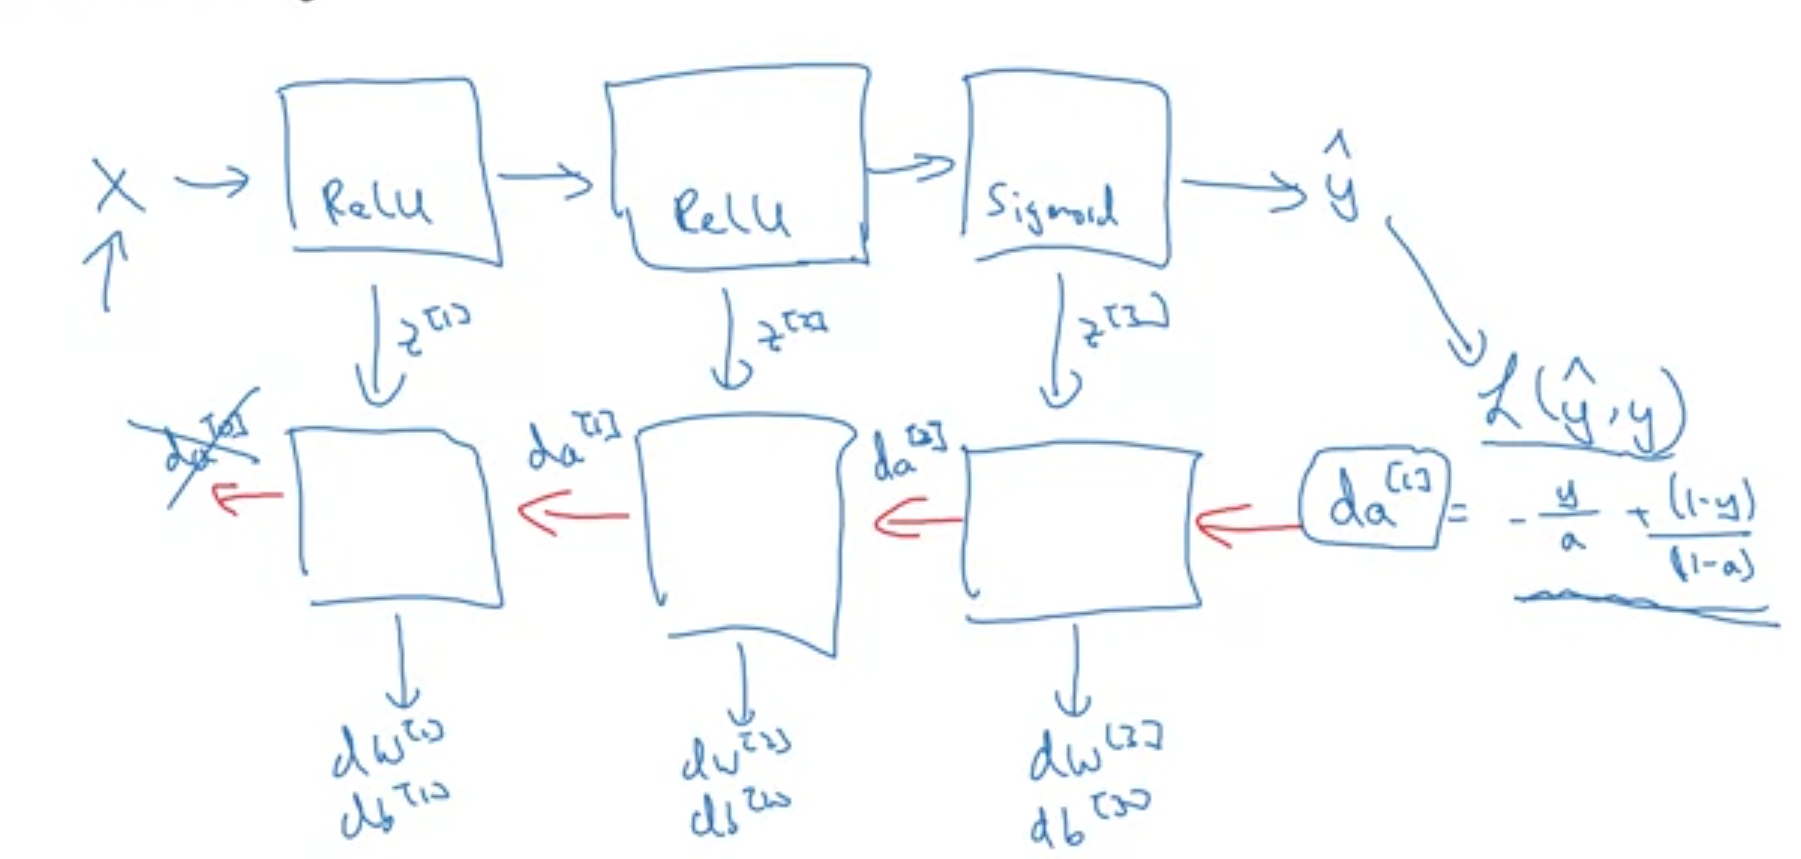 X → ReLU → ReLU → Sigmoid → ŷ
z^[1] z^[2] z^[3]
L(ŷ, y)
da^[0] da^[1] da^[2] da^[l] = - y/a + (1-y)/(1-a)
dw^[1] dw^[2] dw^[3]
db^[1] db^[2] db^[3]